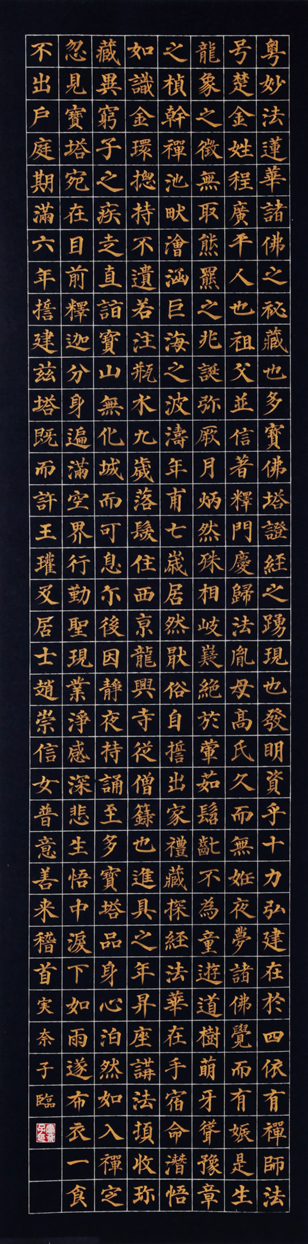 粤妙法蓮華諸佛之祕藏也多寶佛塔證經之踴現也發明資乎十力弘建在於四依有禪師法
号楚金姓程廣平人也祖父並信著釋門慶歸法胤母高氏久而無姙夜夢諸佛覺而有娠是生
龍象之徵無取熊羆之兆誕弥厥月炳然殊相岐嶷絕於葷茹髫齓不為童遊道樹萌牙聳豫章
之楨幹禪池畎澮涵巨海之波濤年甫七歲居然猒俗自誓出家禮藏探經法華在手宿命潛悟
如識金環揔持不遺若注瓶水九歲落髮住西京龍興寺從僧籙也進具之年昇座講法頂收珎
藏異窮子之疾走直詣寶山無化城而可息尓後因靜夜持誦至多寶塔品身心泊然如入禪定
忽見寶塔宛在目前釋迦分身遍滿空界行勤聖現業淨感深悲生悟中淚下如雨遂布衣一食
不出戶庭期滿六年誓建茲塔既而許王瓘及居士趙崇信女普意善来稽首
実奈子臨